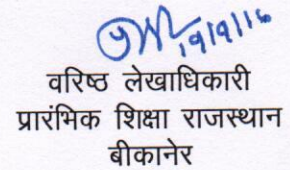 19/9/16
वरिष्ठ लेखाधिकारी
प्रारंभिक शिक्षा राजस्थान
बीकानेर